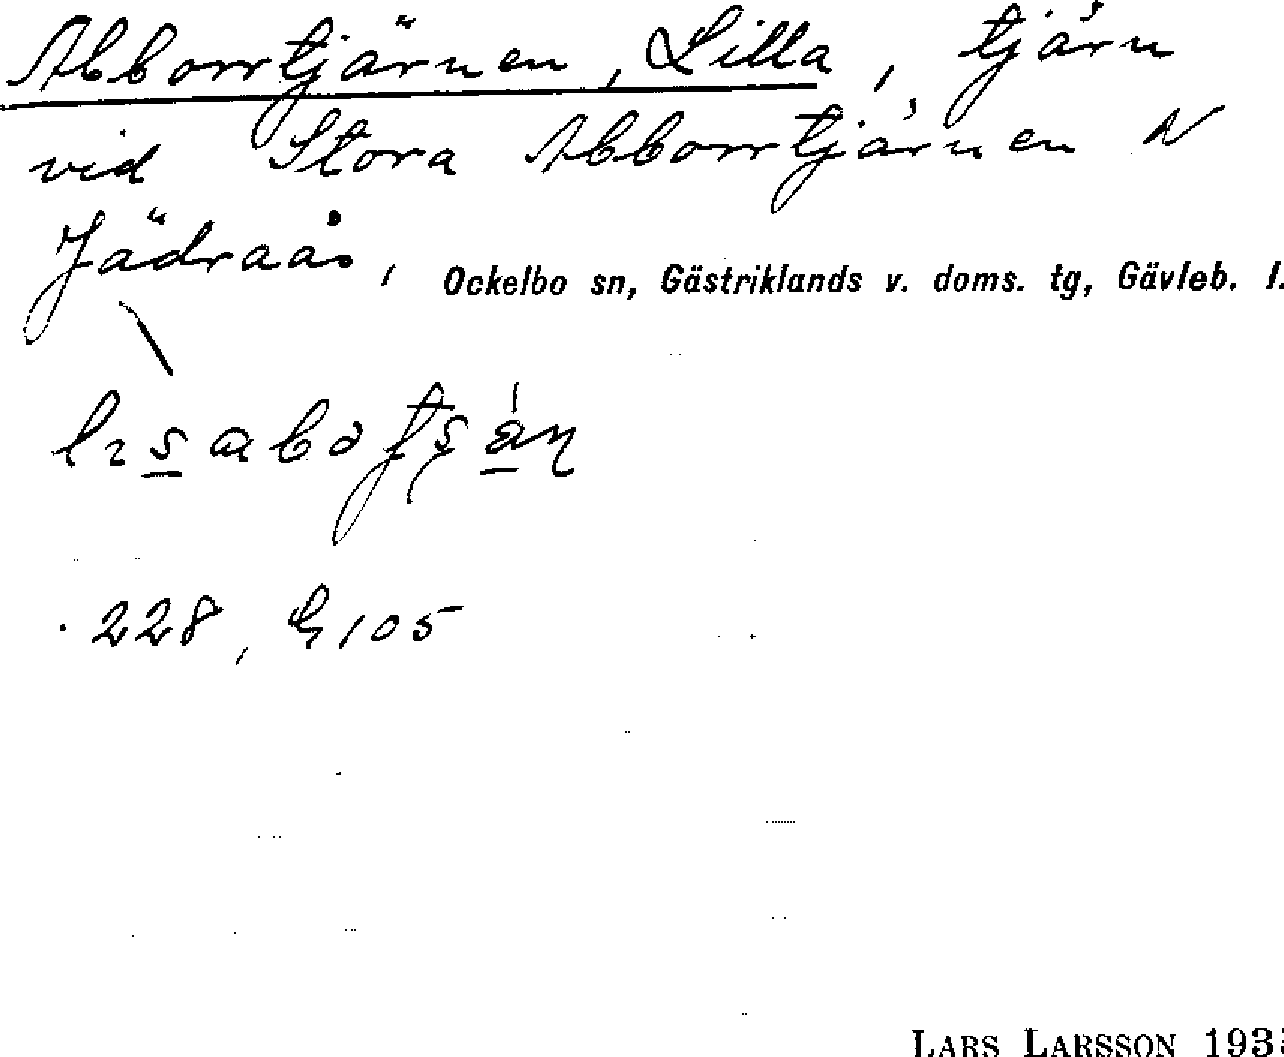 Abborrtjärnen, Lilla, tjärn
vid Stora Abborrtjärnen N
Jädraås, Ockelbo sn, Gästriklands v. doms. tg, Gävleb. l.
228, G 105
LARS LARSSON